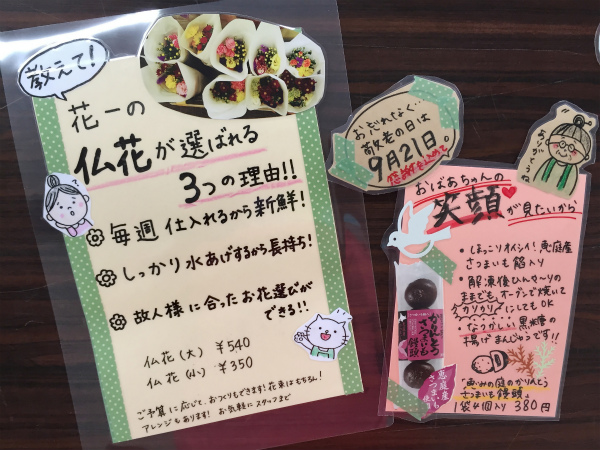 教えて!
花一の
仏花が選ばれる
3つの理由!!
毎週仕入れるから新鮮!
しっかり水あげするから長持ち!
故人様に合ったお花選びが
できる!!
仏花(大) ¥540
仏花(小) ¥350
ご予算に応じて、おつくりもできます!花束はもちろん!
アレンジもあります! お気軽にスタッフまで
お忘れなく…
敬老の日は
9月21日。
感謝を込めて
ありがとうね
おばあちゃんの
笑顔が見たいから
・ほっこりオイシイ!恵庭産
さつまいも餡入り
・解凍後ひんや〜りの
ままでもオーブンで焼いて
カリカリにしてもOK
・なつかしい黒糖の
揚げまんじゅうです!!
かりんとう
さつまいも
饅頭
恵庭産
さつまいも
使用
「恵みの庭のかりんとう
さつまいも饅頭」
1袋4個入り 380円